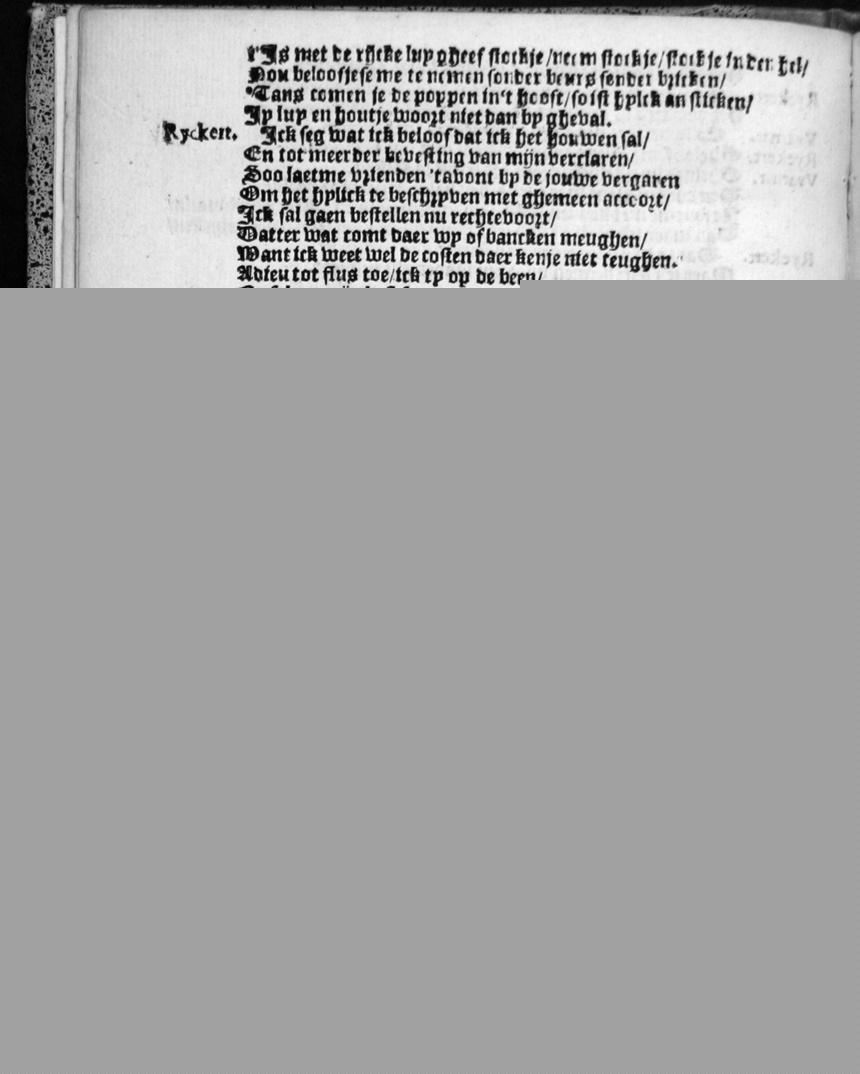 t'Is met de rijcke luy gheef stockje/neem stockje/stockje in der hel/
Nou beloofjese me te nemen sonder beurs sonder bricken/
'Tans comen je de poppen in't hooft/so ist hylick an sticken/
Jy luy en houtje woort niet dan by gheval.
Ryckert. Ick seg wat ick beloof dat ick het houwen sal/
En tot meerder bevesting van mijn verclaren/
Soo laetme vrienden 'tavont by de jouwe vergaren
Om het hylick te beschryven met ghemeen accoort/
Ick sal gaen bestellen nu rechtevoort/
Datter wat comt daer wy of bancken meughen/
Want ick weet wel de costen daer kenje niet teughen.
Adieu tot flus toe/ick ty op de been/